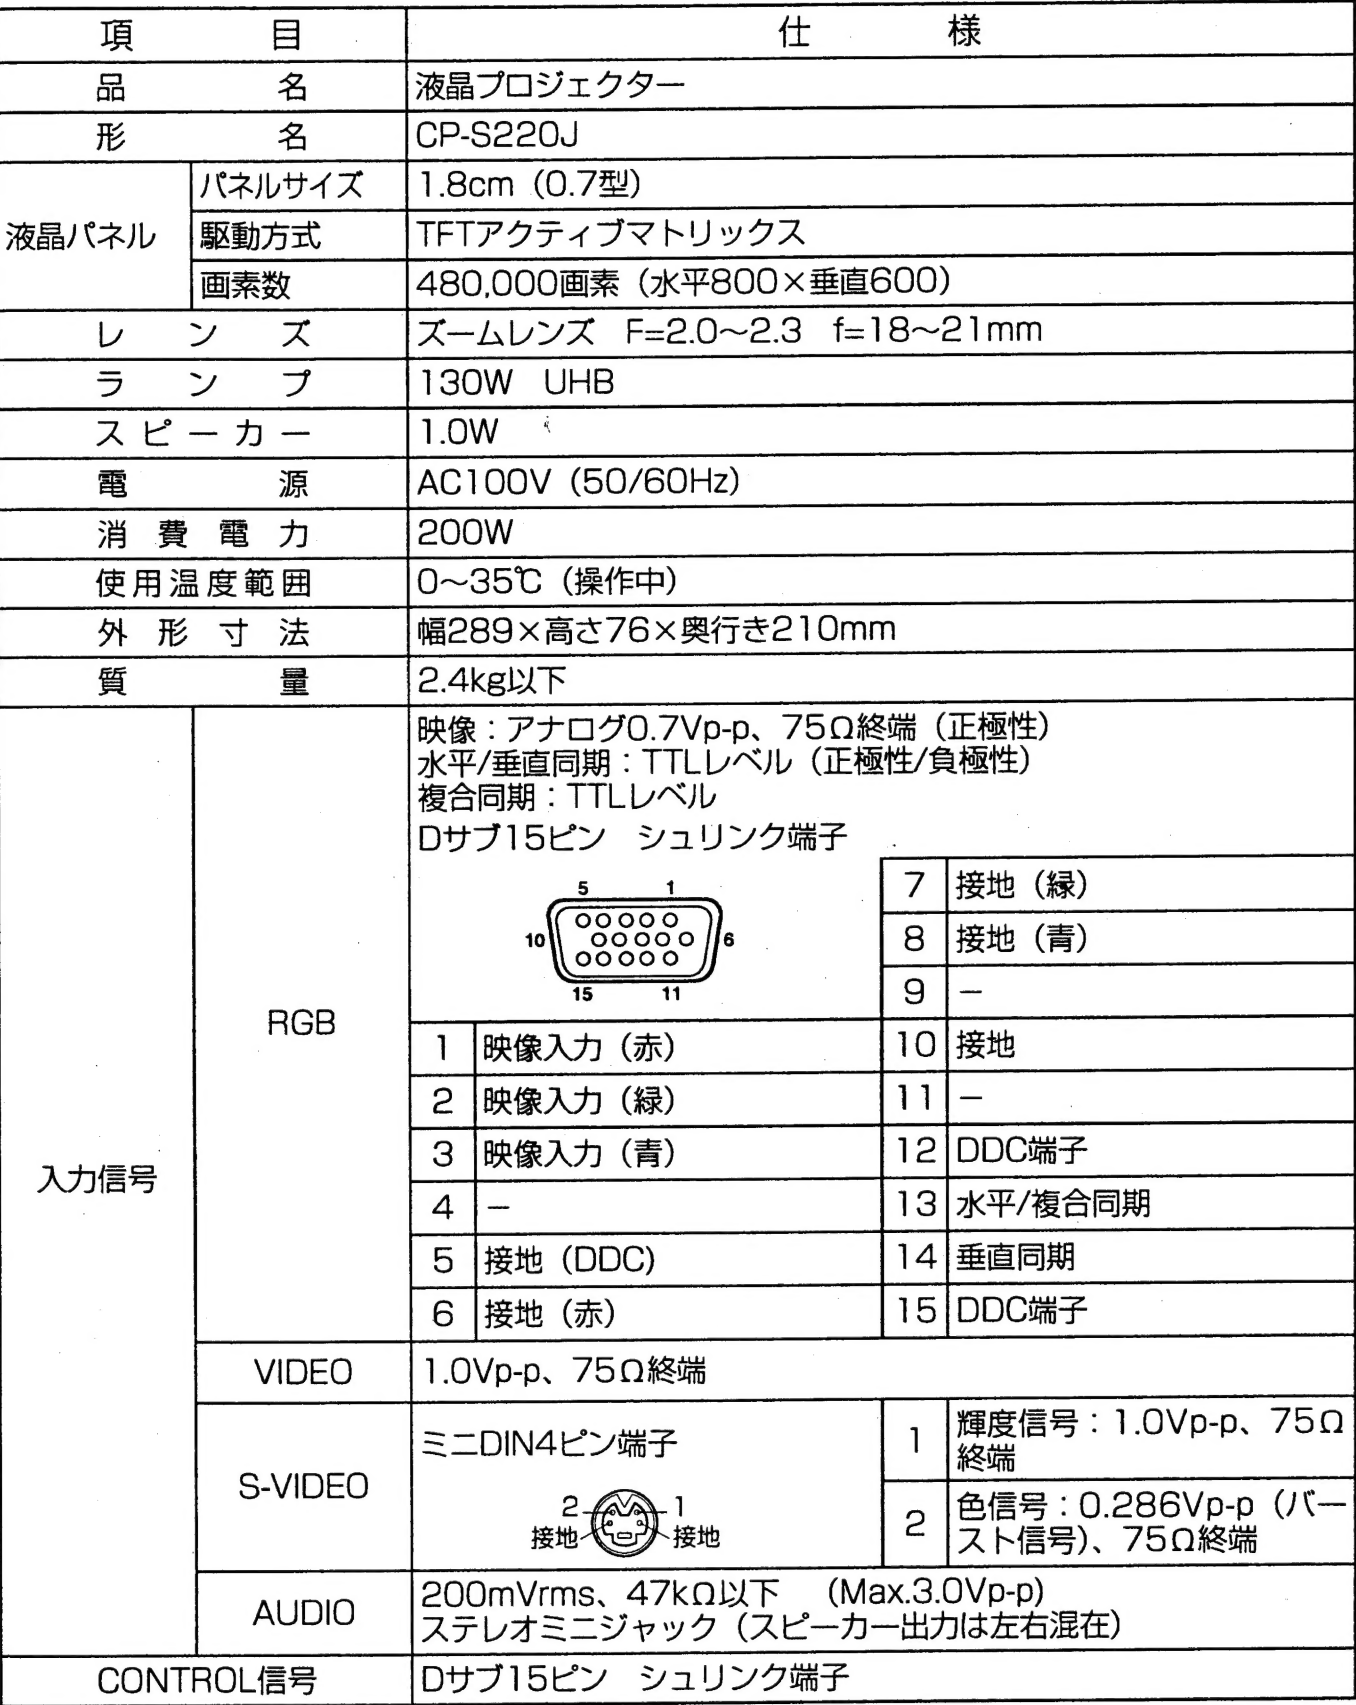 項目 仕様
品名 液晶プロジェクター
形名 CP-S220J
液晶パネル パネルサイズ 1.8cm（0.7型）
駆動方式 TFTアクティブマトリックス
画素数 480,000画素（水平800×垂直600）
レンズ ズームレンズ F=2.0～2.3 f=18～21mm
ランプ 130W UHB
スピーカー 1.0W
電源 AC100V（50/60Hz）
消費電力 200W
使用温度範囲 0～35℃（操作中）
外形寸法 幅289×高さ76×奥行き210mm
質量 2.4kg以下
入力信号
RGB
映像：アナログ0.7Vp-p、75Ω終端（正極性）
水平/垂直同期：TTLレベル（正極性/負極性）
複合同期：TTLレベル
Dサブ15ピン シュリンク端子
5 1
10 6
15 11
1 映像入力（赤）
2 映像入力（緑）
3 映像入力（青）
4 －
5 接地（DDC)
6 接地（赤）
7 接地（緑）
8 接地（青）
9 －
10 接地
11 －
12 DDC端子
13 水平/複合同期
14 垂直同期
15 DDC端子
VIDEO 1.0Vp-p、75Ω終端
S-VIDEO
ミニDIN4ピン端子
2 1
接地 接地
1 輝度信号：1.0Vp-p、75Ω
終端
2 色信号：0.286Vp-p（バー
スト信号)、75Ω終端
AUDIO
200mVrms、47kΩ以下 (Max.3.0Vp-p)
ステレオミニジャック（スピーカー出力は左右混在）
CONTROL信号 Dサブ15ピン シュリンク端子